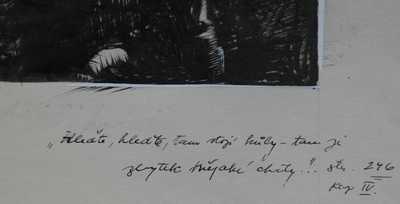 „Hleďte, hleďte, tam stojí kůly – tam je
zbytek nějaké chaty..." str. 246
Kap IV.